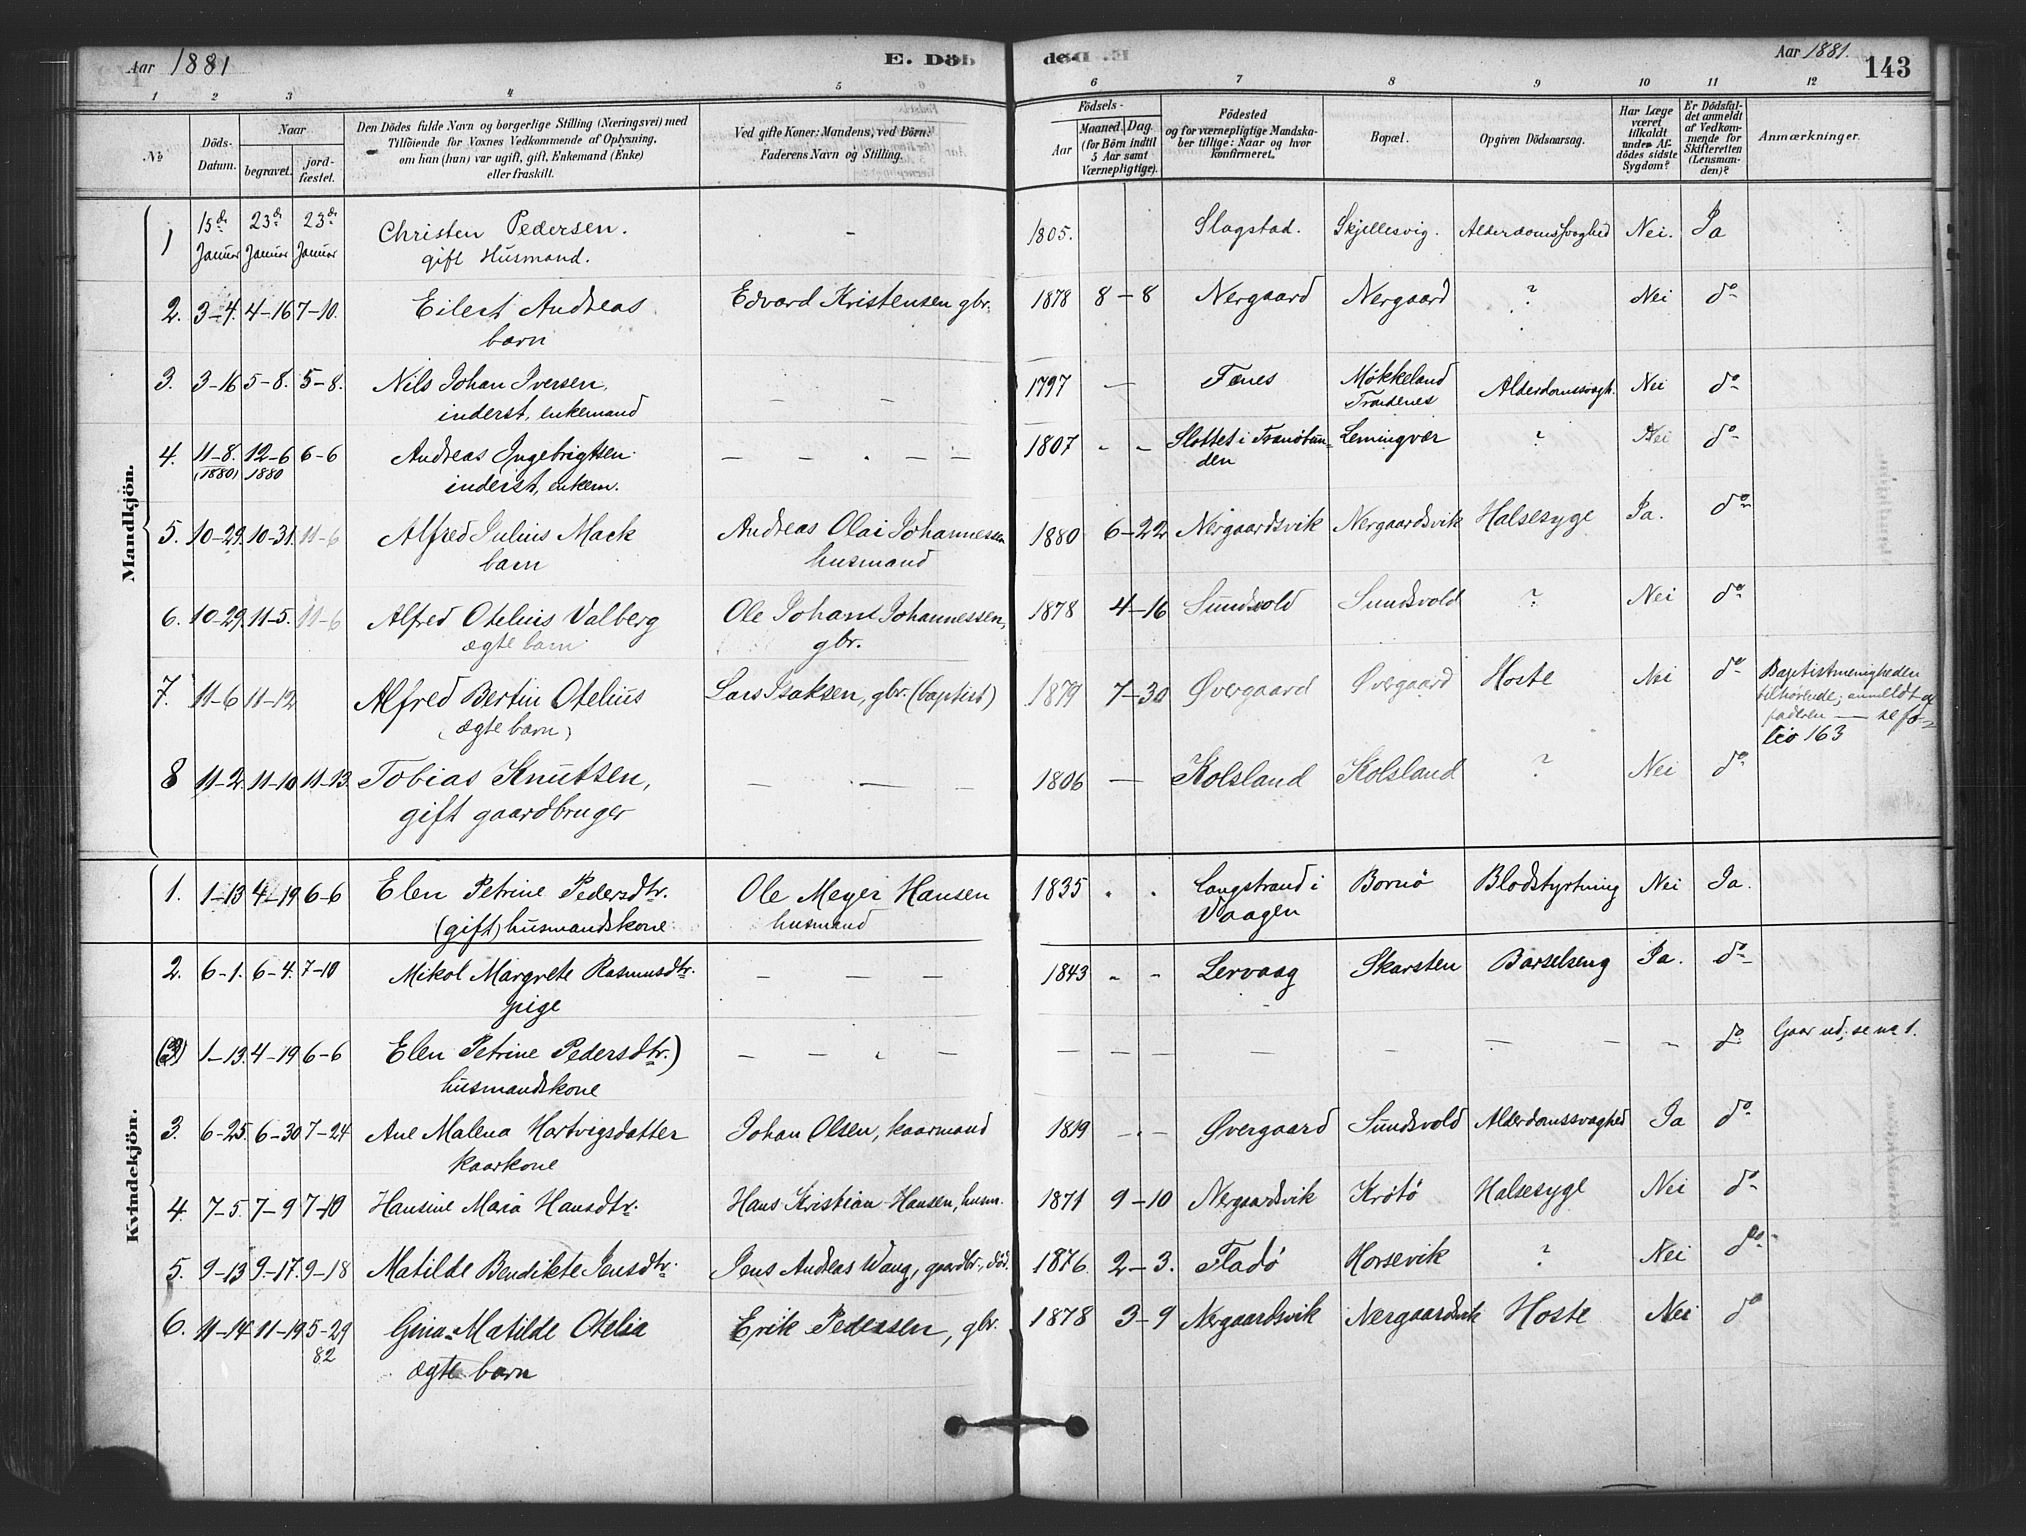 Aar 1881
E. Död
E. Död
Aar 1881.
143
1 2 3 4 5 6 7 8 9 10 11 12
№
Döds-Datum.
Naar
begravet.
jord-fæstet.
Den Dödes fulde Navn og borgerlige Stilling (Næringsvei) med
Tilföiende for Voxnes Vedkommende af Oplysning,
om han (hun) var ugift, gift, Enkemand (Enke)
eller fraskilt.
Ved gifte Koner: Mandens, ved Börn:
Faderens Navn og Stilling.
Födsels-
Aar
Maaned. Dag.
(for Börn indtil
5 Aar samt
Værnepligtige).
Födested
og for værnepligtige Mandska-
ber tillige: Naar og hvor
konfirmeret.
Bopæl.
Opgiven Dödsaarsag.
Har Læge
været
tilkaldt
under Af-
dödes sidste
Sygdom?
Er Dödsfal-
det anmeldt
af Vedkom-
mende for
Skifteretten
(Lensman-
den)?
Anmærkninger.
Mandkjön.
1 15de Januar 23de Januar 23de Januar Christen Pedersen. - 1805. Slagstad. Skjellesvig. Alderdomssvaghed Nei. Ja
gift Husmand.
2. 3-4. 4-16 7-10. Eilert Andreas Edvard Kristensen gbr. 1878 8-8 Nergaard Nergaard ? Nei do
barn
3. 3-16 5-8. 5-8. Nils Johan Iversen, - - 1797 - Fænes Møkkeland Alderdomssvagh. Nei do
inderst, enkemand Trondenes
4. 11-8. 12-6 6-6 Andreas Ingebrigtsen - - - - 1807 - - Slottet i Tranöbun- Lemingvær ? Nei do
(1880) 1880 inderst, enkem. den
5. 10-29. 10-31. 11-6 Alfred Julius Mack Andreas Olai Johannessen 1880 6-22 Nergaardsvik Nergaardsvik Halsesyge Ja. do
barn husmand
6. 10-29. 11-5. 11-6 Alfred Otelius Valberg Ole Johan Johannessen, 1878 4-16 Sundsvold Sundsvold ? Nei do
ægte barn gbr.
7. 11-6 11-12 Alfred Bertin Otelius Lars Isaksen, gbr. (baptist) 1879 7-30 Øvergaard Øvergaard Hoste Nei do Baptistmenigheden
(ægte barn) tilhørende; anmeldt af
faderen — se fo-
lio 163
8 11-2. 11-10 11-13. Tobias Knutsen, - - - 1806 - Kolsland Kolsland ? Nei do
gift gaardbruger
Kvindekjön.
1. 1-13 4-19 6-6 Elen Petrine Pedersdtr. Ole Meyer Hansen 1835 Langstrand i Bornö Blodstyrtning Nei Ja.
(gift) husmandskone husmand Vaagen
2. 6-1. 6-4. 7-10 Mikol Margrete Rasmusdtr. - - - 1843 - - Lervaag Skarsten Barselseng Ja. do
pige
(3) 1-13. 4-19 6-6 Elen Petrine Pedersdtr.) - - - - - - - - - - - - do Gaar ud, se no 1.
husmandskone
3. 6-25. 6-30 7-24 Ane Malena Hartvigsdatter Johan Olsen, kaarmand 1819 - - Øvergaard Sundsvold Alderdomssvaghed Ja do
kaarkone
4. 7-5. 7-9 7-10 Hansine Maria Hansdtr. Hans Kristian Hansen, husm. 1871 9-10 Nergaardsvik Krötö Halsesyge Nei do
5. 9-13 9-17. 9-18 Matilde Bendikte Jensdtr. Jens Andreas Wang, gaardbr., död. 1876. 2-3. Fladö Horsevik ? Nei do
6. 11-14 11-19 5-29 Gina Matilde Otelia Erik Pedersen, gbr. 1878 3-9 Nergaardsvik Nergaardsvik Hoste Nei do
82 ægte barn